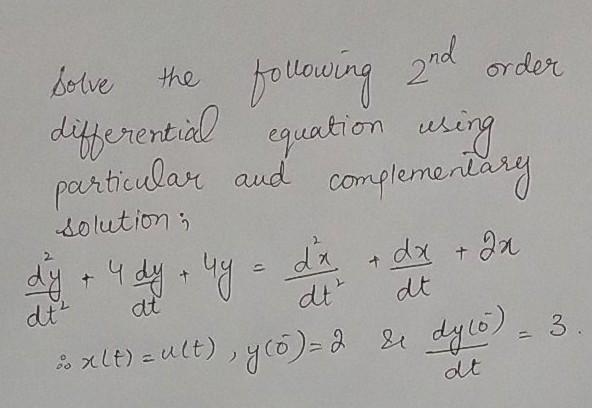 Solve the following 2nd order
differential equation using
particular and complementary
solution;
d²y/dt² + 4 dy/dt + 4y = d²x/dt² + dx/dt + 2x
∴ x(t) = u(t), y(0⁻) = 2 & dy(0⁻)/dt = 3.